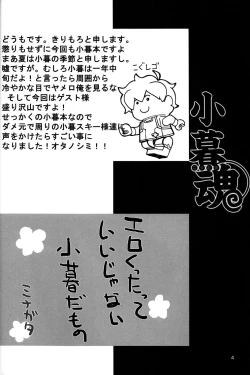 どうもです。きりもろと申します。
懲りもせずに今回も小暮本ですよ
まあ夏は小暮の季節と申しますし。
嘘ですが。むしろ小暮は一年中
旬だよ！と言ったら周囲から
冷やかな目でヤメロ俺を見るな
そして今回はゲスト様
盛り沢山ですよ！
せっかくの小暮本なので
ダメ元で周りの小暮スキー様達に
声をかけたらすごい事に
なりました！オタノシミ！！
こぐしご
小暮魂
エロくったって
いいじゃない
小暮だもの
みながた
4